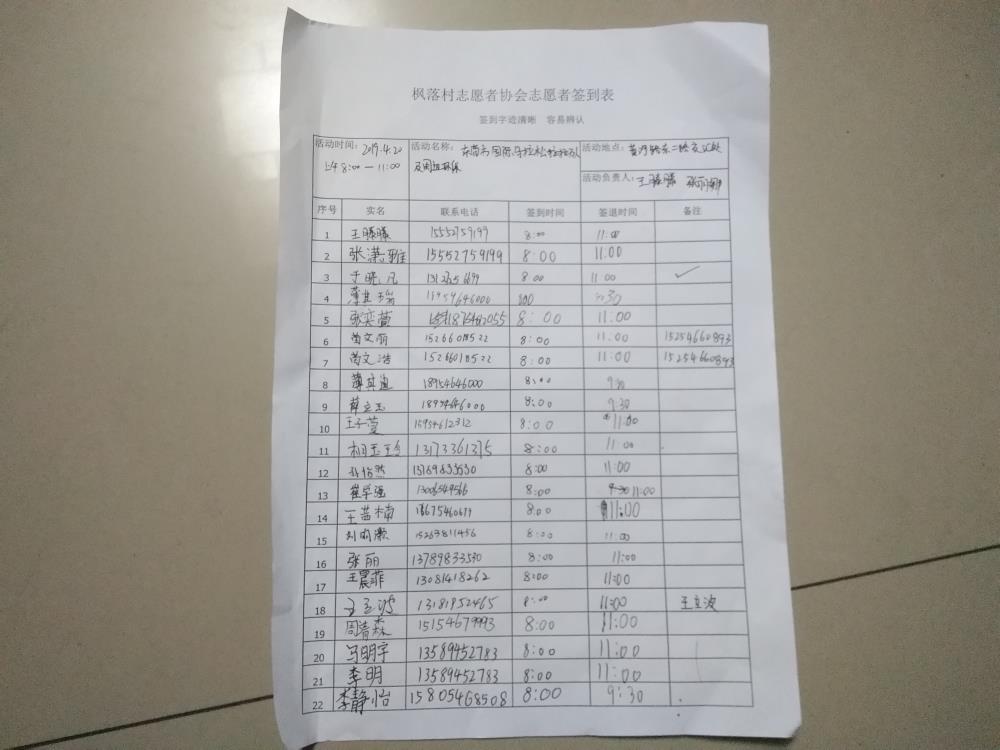 枫落村志愿者协会志愿者签到表
签到字迹清晰 容易辨认
活动时间: 2019.4.20 活动名称: 东营市国际马拉松拉拉队 活动地点: 黄河路东二路交汇处
上午8:00—11:00 及周边环保
活动负责人:
序号 实名 联系电话 签到时间 签退时间 备注
1 王 15552759199 8:00 11:00
2 张潇雅 15552759199 8:00 11:00
3 于晓凡 8:00 11:00 ✓
4 18954646000
5 张奕萱 8:00 11:00
6 尚文丽 15266018522 8:00 11:00 15254660893
7 尚文浩 15266018522 8:00 11:00 15254660893
8 薄其迪 18954646000 8:00 9:30
9 薛立玉 18954646000 8:00 9:30
10 王子萱 15954612312 8:00 11:00
11 相玉玲 13173361375 8:00 11:00
12 8:00 11:00
13 崔学强 8:00 11:00
14 王苗楠 8:00 11:00
15 15263811456 8:00 11:00
16 张丽 13789833530 8:00 11:00
17 王晨菲 13081418262 8:00 11:00
18 王立波 13181952465 8:00 11:00 王立波
19 周清森 15154679993 8:00 11:00
20 马明宇 13589452783 8:00 11:00
21 李明 13589452783 8:00 11:00
22 李静怡 15805468508 8:00 9:30